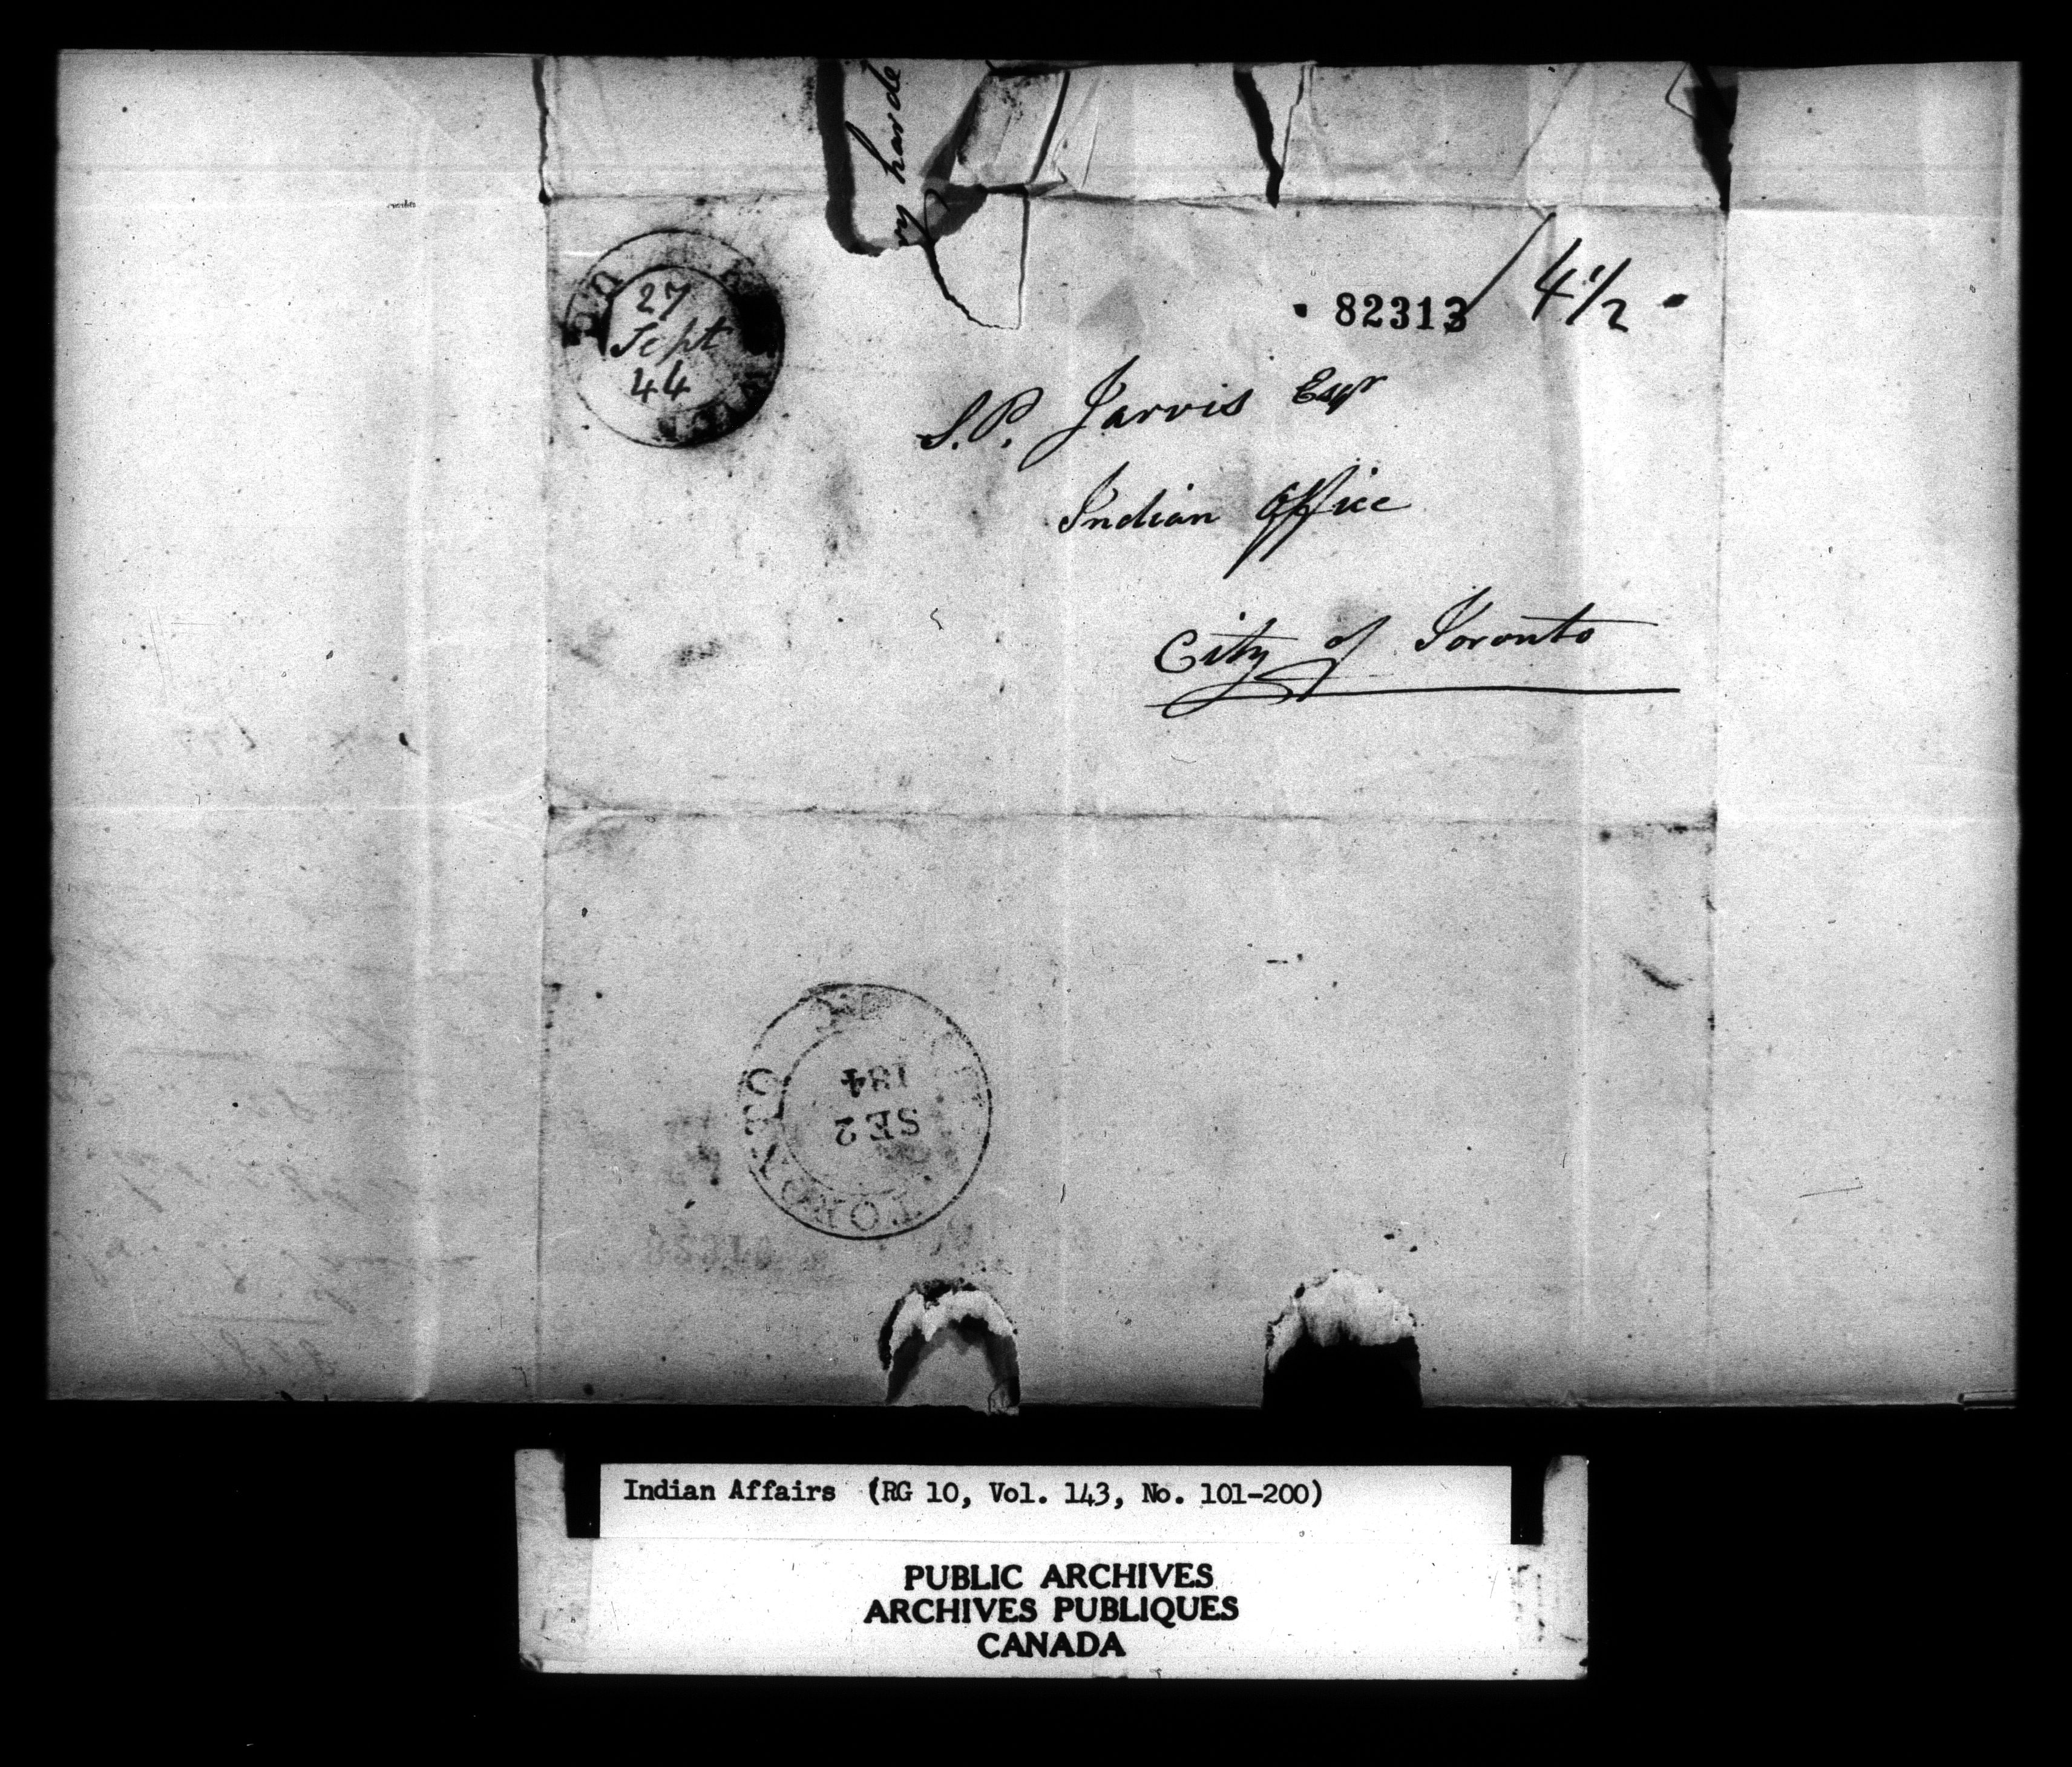 hande
27
Sept
44
82313
4 1/2
S.P. Jarvis Esqr
Indian Office
City of Toronto
TORONTO
SE 2
184
Indian Affairs (RG 10, Vol. 143, No. 101-200)
PUBLIC ARCHIVES
ARCHIVES PUBLIQUES
CANADA